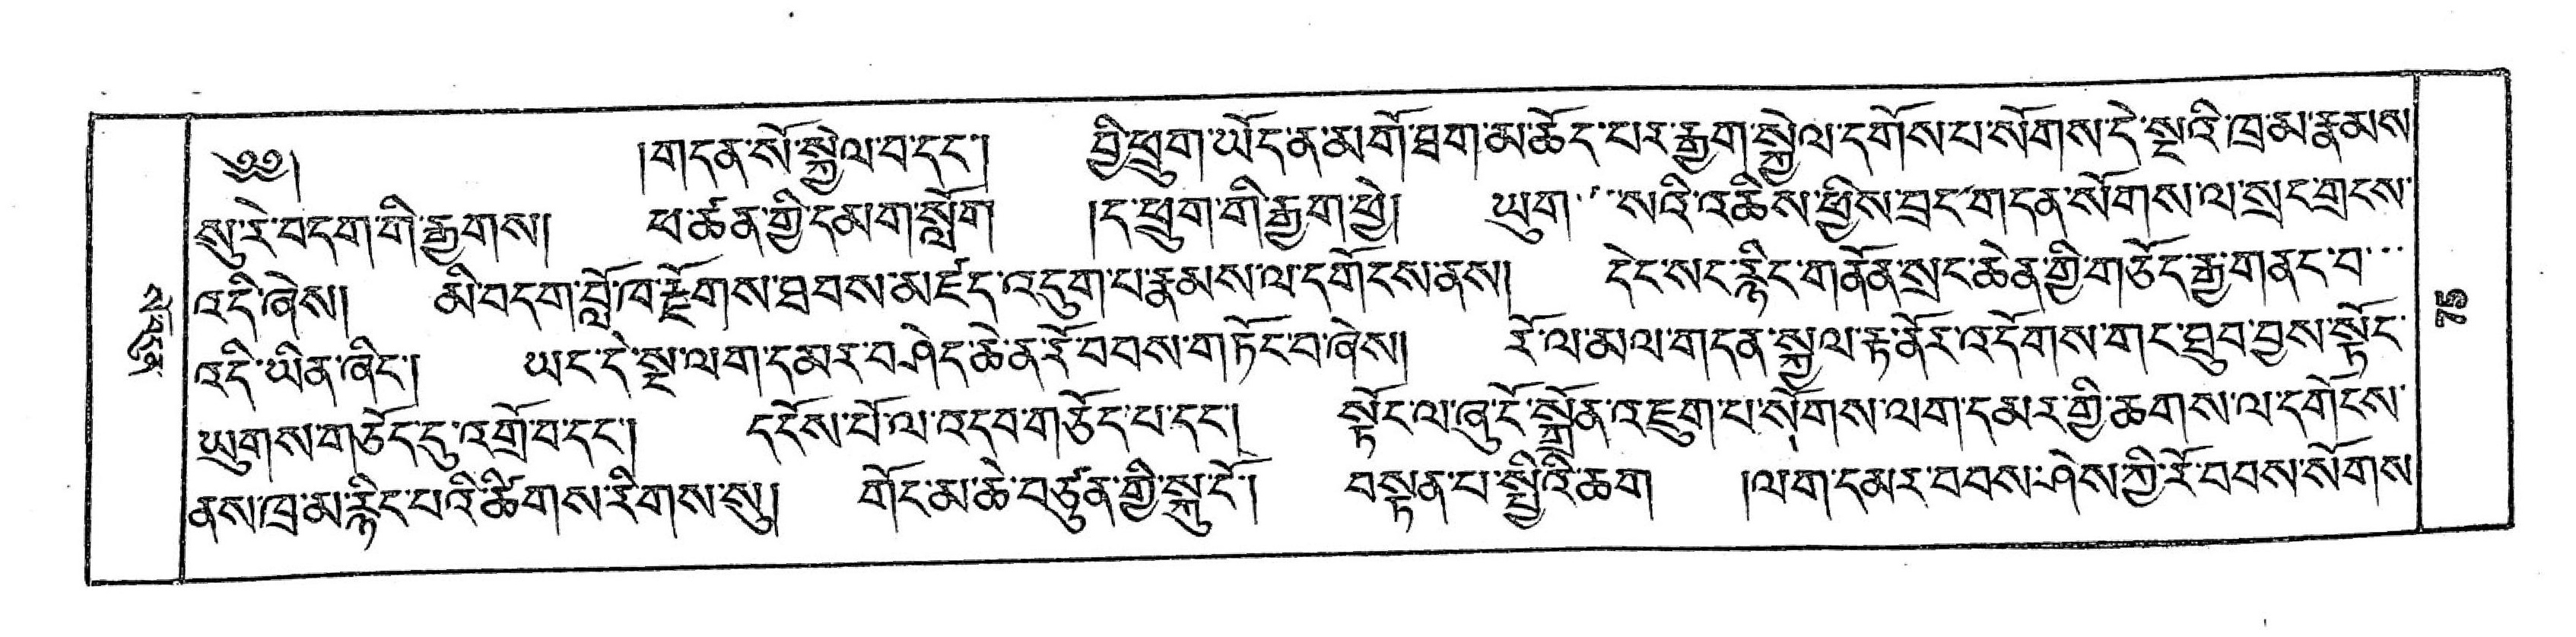 ༄༅། །གདན་སོ་སྐྱེལ་བ་དང་། བྱི་ཕྲུག་ཡོད་ན་མགོ་ཐག་མ་ཆོད་པར་རྒྱག་སྐྱེལ་དགོས་པ་སོགས་དེ་སྔའི་ཁྲམ་རྣམས
སུ་རེ་བདག་གི་རྒྱགས། ཕ་ཚན་གྱི་དམག་སློག །ད་ཕྲུག་གི་རྒྱག་ཕྱེ། ཡུག་ སའི་འཆིས་ཕྱིས་བྲང་གདན་སོགས་ལ་སྲང་གྲངས་
འདི་ཞེས། མི་བདག་བློ་ཁ་རྫོགས་ཐབས་མཛད་འདུག་པ་རྣམས་ལ་དགོངས་ནས། དེང་སང་རྙིང་གནོན་སྲང་ཆེན་གྱི་གཅོད་རྒྱ་གནང་བ་
འདི་ཡིན་ཞིང་། ཡང་དེ་སྔ་ལག་དམར་བ་ཤེད་ཆེན་རོ་བབས་གཏོང་བ་ཞེས། རོ་ལ་མལ་གདན་སྐྱལ་རྟ་ནོར་འདོགས་གང་ཐུབ་བྱས་སྟོང་
ཡུགས་གཅོད་དུ་འགྲོ་བ་དང་། དངོས་པོ་ལ་འདབ་གཅོད་པ་དང་། སྟོང་ལ་ཞུ་ངོ་སྒྲོན་འཇུག་པ་སོགས་ལག་དམར་གྱི་ཆགས་ལ་དགོངས་
ནས་ཁྲམ་རྙིང་པའི་ཚིགས་རིགས་སུ། གོང་མ་ཆེ་བཙུན་གྱི་སྐུ་ངོ་། བསྟན་པ་སྤྱིའི་ཆག །ལག་དམར་བབས་ཤེས་ཀྱི་རོ་བབས་སོགས